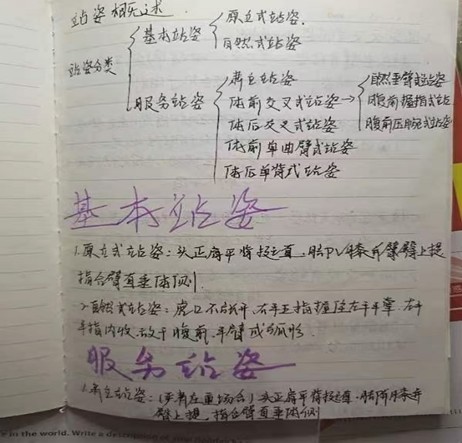 站姿概述
站姿分类
基本站姿
原立式站姿
自然式站姿
服务站姿
肃立站姿
体前交叉式站姿→
自然垂臂式站姿
腹前握指式站姿
腹前压腕式站姿
体后交叉式站姿
体前单曲臂式站姿
体后单背式站姿
基本站姿
1.原立式站姿:头正肩平背挺直,脚PV膝并臀上提
指合臂直垂体侧
2.自然式站姿:虎口不张开,右手五指握住左手手掌
手指内收,放于腹前,手臂成弧形
服务站姿
1.肃立站姿:头正肩平背挺直
上提,指合臂直垂体侧
in the world. Write a